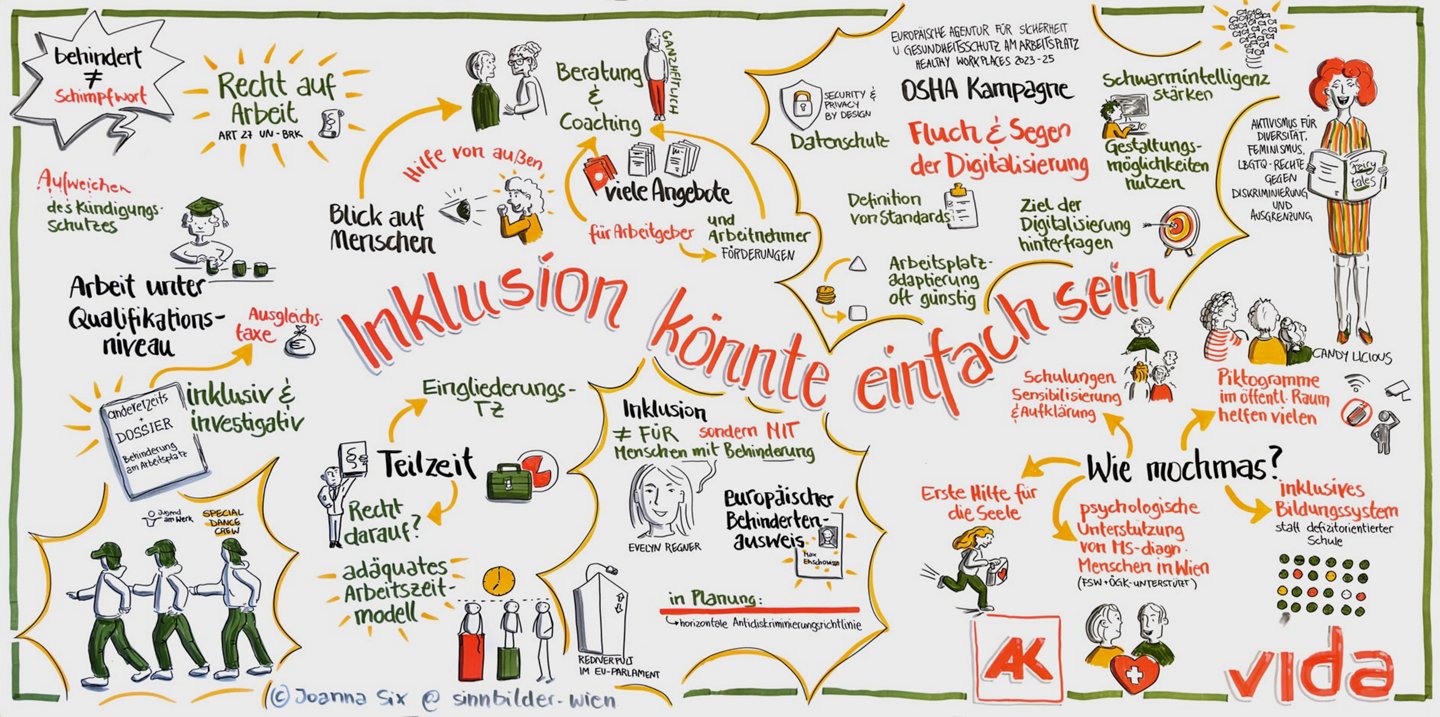 behindert
≠
Schimpfwort
Recht auf
Arbeit
ART 27 UN-BRK
Aufweichen
des Kündigungs-
schutzes
Arbeit unter
Qualifikations-
niveau
Ausgleichs-
taxe
andererseits
+
DOSSIER
Behinderung
am Arbeitsplatz
inklusiv &
investigativ
Jugend
am Werk
SPECIAL
DANCE
CREW
Blick auf
Menschen
Hilfe von außen
Beratung
&
Coaching
GANZHEITLICH
viele Angebote
für Arbeitgeber
und
Arbeitnehmer
FÖRDERUNGEN
Inklusion könnte einfach sein
EUROPÄISCHE AGENTUR FÜR SICHERHEIT
U GESUNDHEITSSCHUTZ AM ARBEITSPLATZ
HEALTHY WORKPLACES 2023-25
OSHA Kampagne
Fluch & Segen
der Digitalisierung
SECURITY &
PRIVACY
BY DESIGN
Datenschutz
Definition
von Standards
Arbeitsplatz-
adaptierung
oft günstig
Ziel der
Digitalisierung
hinterfragen
Schwarmintelligenz
stärken
Gestaltungs-
möglichkeiten
nutzen
AKTIVISMUS FÜR
DIVERSITÄT,
FEMINISMUS,
LBGTQ-RECHTE
GEGEN
DISKRIMINIERUNG
UND
AUSGRENZUNG
Fairy
tales
CANDY LICIOUS
Eingliederungs-
TZ
Teilzeit
Recht
darauf?
adäquates
Arbeitszeit-
modell
Inklusion
≠ FÜR sondern MIT
Menschen mit Behinderung
EVELYN REGNER
Europäischer
Behinderten-
ausweis
REDNERPULT
IM EU-PARLAMENT
in Planung:
horizontale Antidiskriminierungsrichtlinie
Wie mochmas?
Schulungen
Sensibilisierung
& Aufklärung
Piktogramme
im öffentl. Raum
helfen vielen
Erste Hilfe für
die Seele
psychologische
Unterstützung
von MS-diagn.
Menschen in Wien
(FSW + ÖGK-UNTERSTÜTZT)
inklusives
Bildungssystem
statt defizitorientierter
Schule
AK
vida
© Joanna Six @ sinnbilder.wien